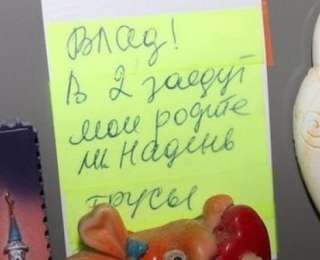 Влад!
В 2 заедут
мои родите
ли надень
трусы